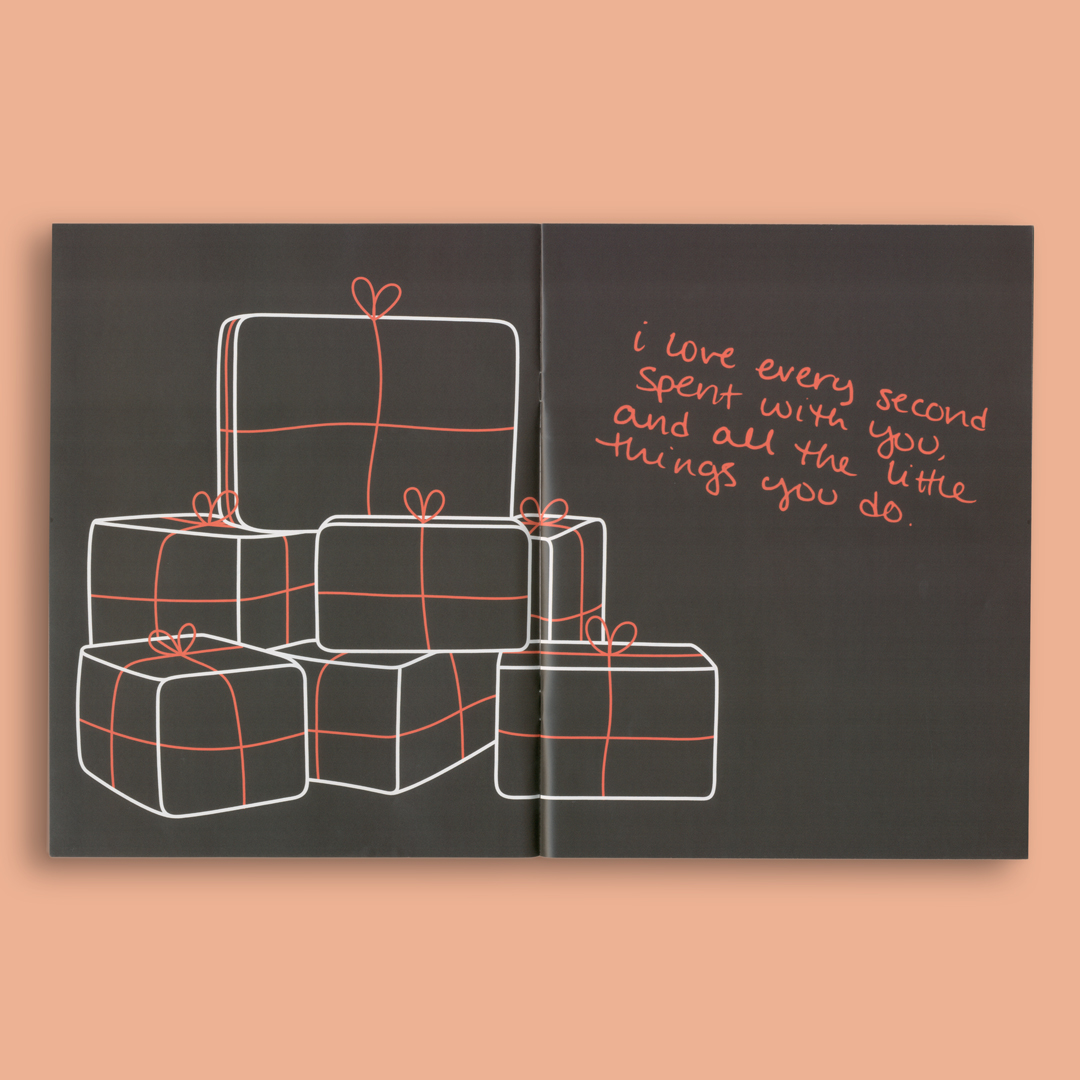 i love every second
spent with you,
and all the little
things you do.